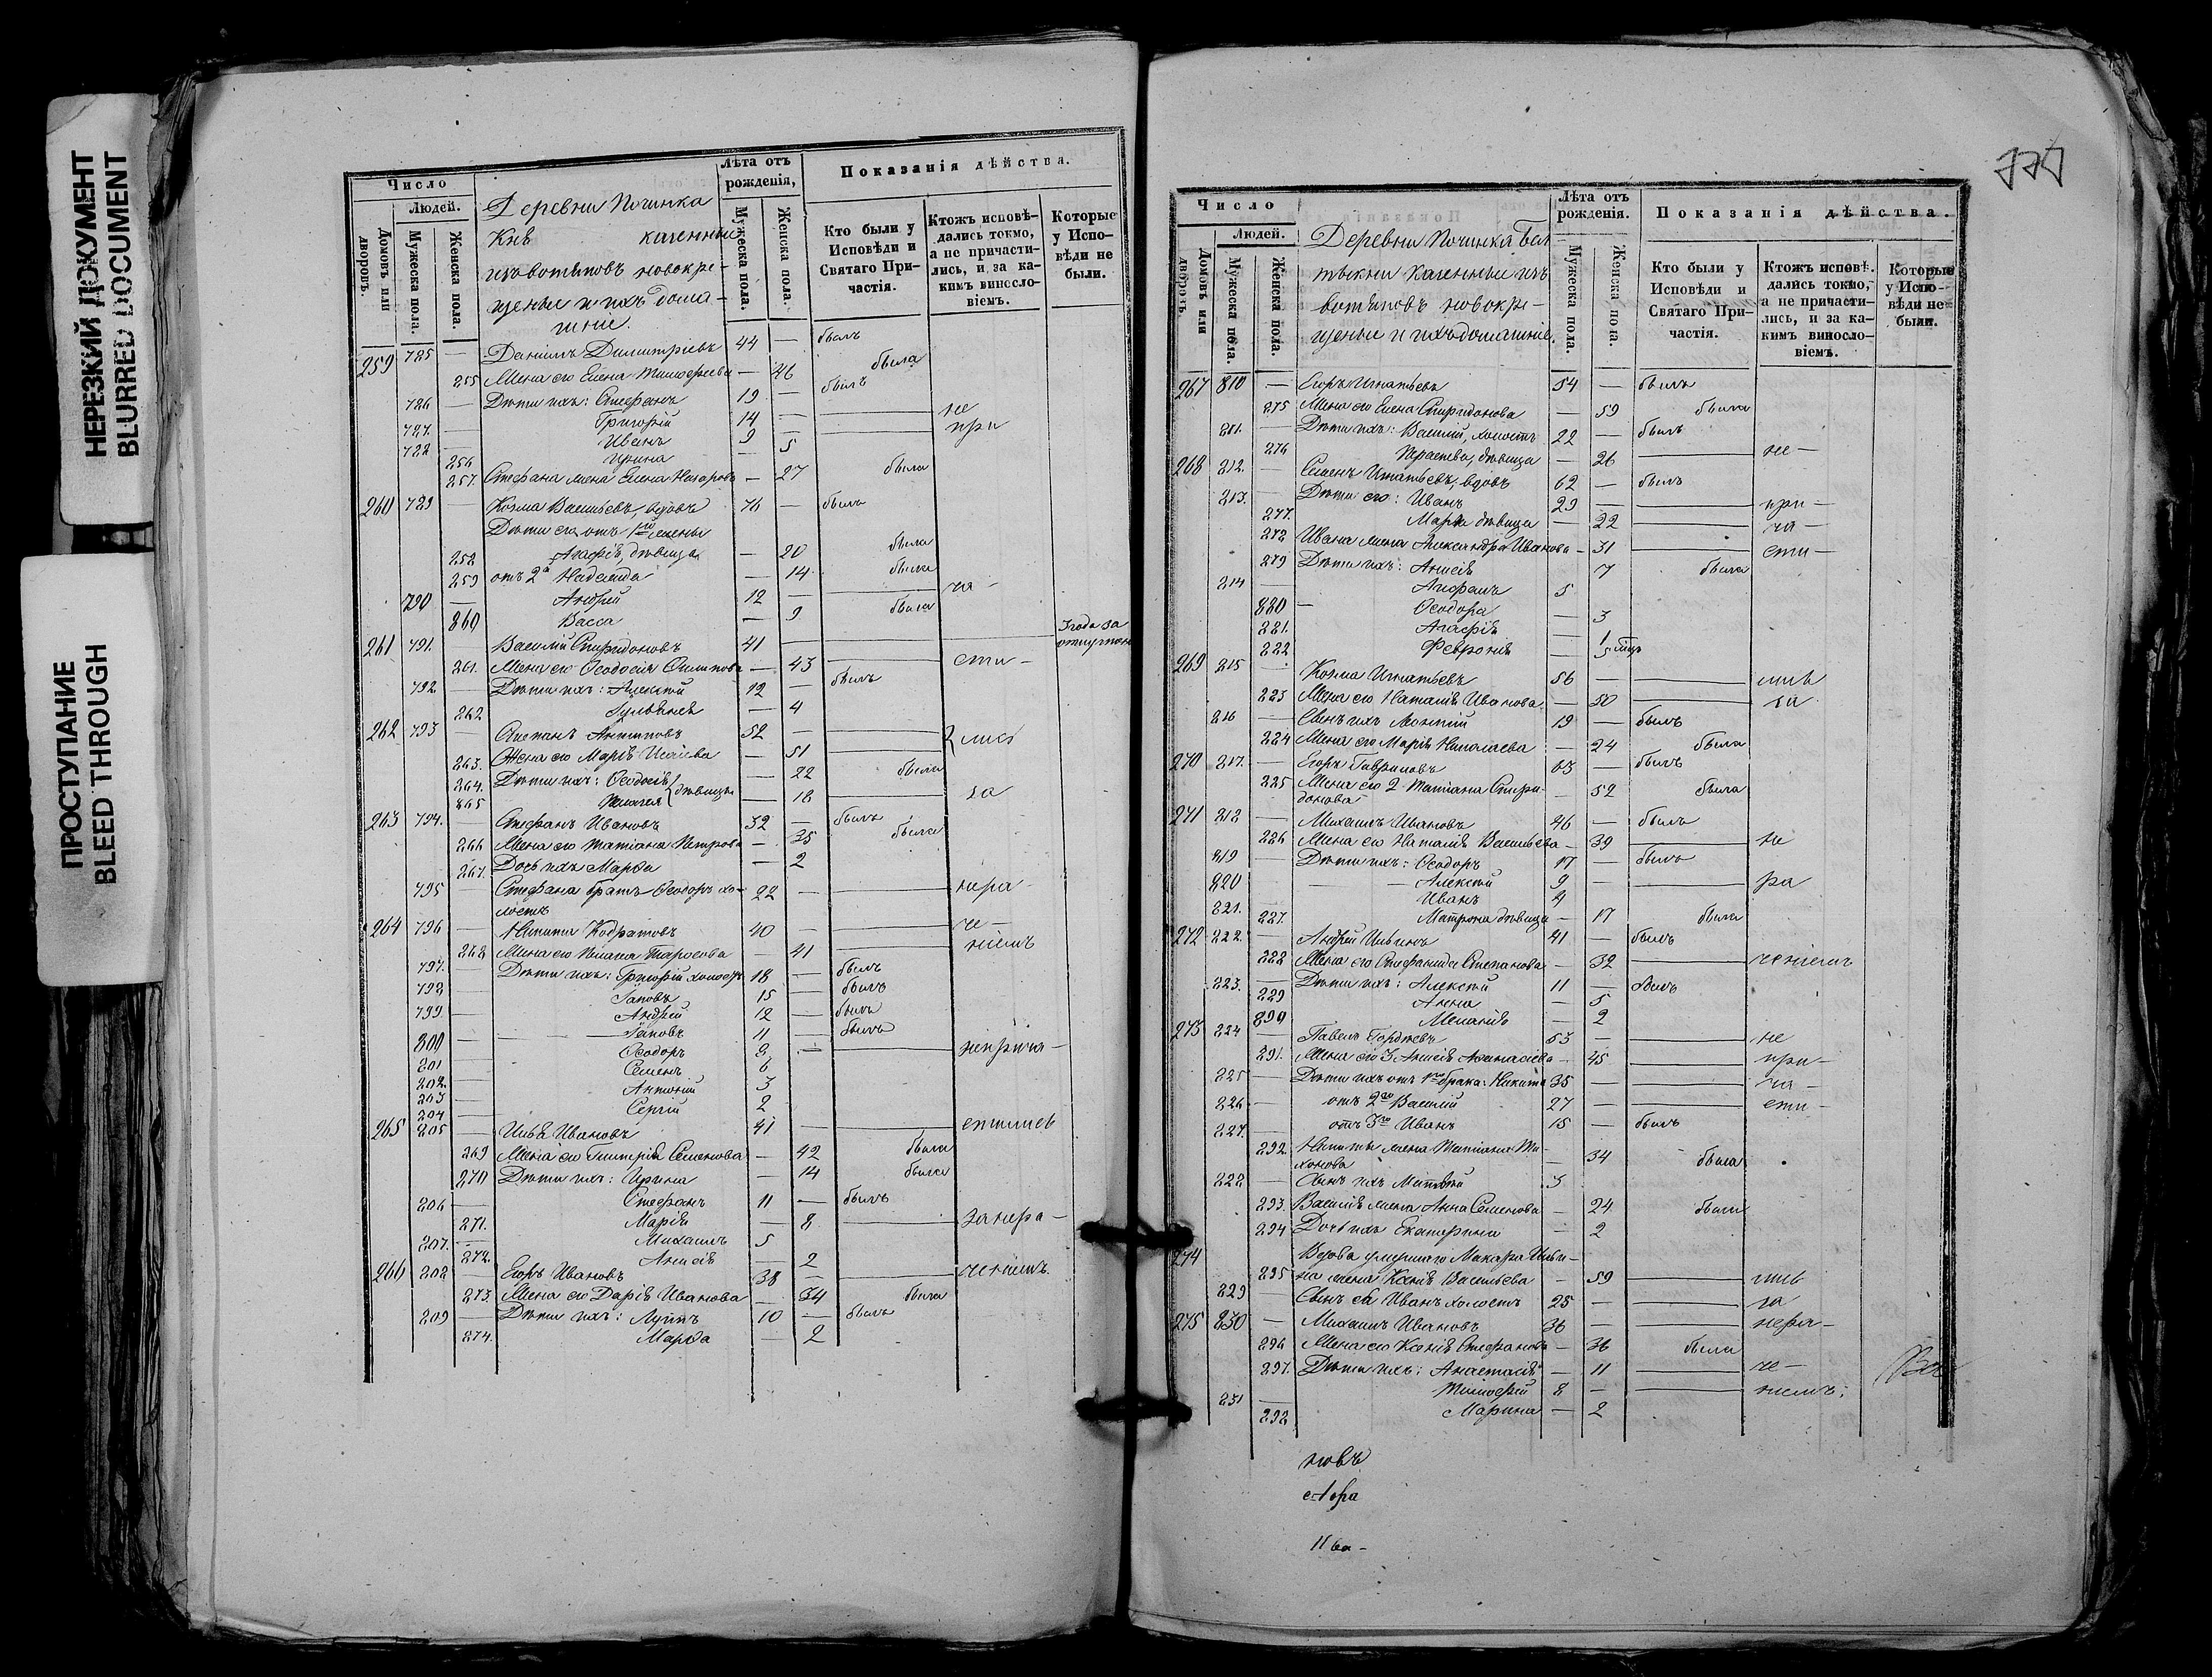 НЕРЕЗКИЙ ДОКУМЕНТ
BLURRED DOCUMENT
ПРОСТУПАНИЕ
BLEED THROUGH
Число
Людей.
Домовъ или дворовъ.
Мужеска пола.
Женска пола.
Деревни Починка
казенные
изъ вотяковъ новокре-
щеные и ихъ дома-
шніе.
Лѣта отъ рожденія,
Мужеска пола.
Женска пола.
Показанія дѣйства.
Кто были у Исповѣди и Святаго При-частія.
Ктожъ исповѣ-дались токмо, а не причасти-лись, и за ка-кимъ винесло-віемъ.
Которые у Испо-вѣди не были.
259 785 — Даніилъ Димитріевъ 44 — былъ
255 Жена его Елена Тимофеева — 46 была
726 — Дѣти ихъ: Стефанъ 19 — былъ
727. — Григорій 14 — не
722 — Иванъ 9 — при
256 Ирина — 5
257. Стефана жена Елена Назарова — 27 была
260 729 — Козма Васильевъ, вдовъ 76 — былъ
Дѣти его отъ 1й жены
252 Агафія, дѣвица — 20 была
259 отъ 2й Надежда — 14 была
790 — Андрей 12 — ча-
860 Васса — 9 была
261 791. — Василій Спиридоновъ 41 — 3 года за
261. Жена его Ѳеодосія Филипова — 43 сти-
792 — Дѣти ихъ: Алексѣй 12 — былъ
262 Гульянія — 4
262 793 — Степанъ Антиповъ 52 — лись
263. Жена его Марія Исаева — 51
264. Дѣти ихъ: Ѳеодосія — 22 была
865 Пелагея дѣвицы — 18 за
263 794. — Стефанъ Ивановъ 32 — былъ
266 Жена его Татіана Петрова — 35 была
267. Дочь ихъ Марѳа — 2
795 Стефана братъ Ѳеодоръ хо-
лостъ 22 — нера-
264 796 — Никита Кодратовъ 40 — че-
268 Жена его Тарасова — 41 ніемъ
797. Дѣти ихъ: Григорій холостъ 18 — былъ
792 — Іаковъ 15 — былъ
799. — Андрей 12 — былъ
800 — Іаковъ 11 — былъ
201 — Ѳеодоръ 8 — неприча-
202. — Семенъ 6
203 — Антоній 3
204 — Сергій 2
265 205 — Илья Ивановъ 41 — стились
269 Жена его Гликерія Семенова — 42 была
270 Дѣти ихъ: Ирина — 14 была
206 — Стефанъ 11 — былъ
271. Марія — 8 за нера-
207. — Михаилъ 5
272. Анисія — 2
266 202 — Егоръ Ивановъ 38 — ченіемъ.
273. Жена его Дарія Иванова — 34 была
209 — Дѣти ихъ: Луппъ 10 — былъ
274. Марѳа — 2
Число
Людей.
Домовъ или дворовъ.
Мужеска пола.
Женска пола.
Деревни Починка
казенные изъ
вотяковъ новокре-
щеные и ихъ домашніе.
Лѣта отъ рожденія.
Мужеска пола.
Женска пола.
Показанія дѣйства.
Кто были у Исповѣди и Святаго При-частія.
Ктожъ исповѣ-дались токмо, а не причасти-лись, и за ка-кимъ винесло-віемъ.
Которые у Испо-вѣди не были.
267 810 — Егоръ Игнатьевъ 54 — былъ
275 Жена его Елена Спиридонова — 59 была
211. — Дѣти ихъ: Василій, холостъ 22 — былъ
276 дѣвица — 26 не-
268 212. — Семенъ Игнатьевъ, вдовъ 62 — былъ
213. — Дѣти его: Иванъ 29 — при-
277. Марѳа дѣвица — 22 ча-
272 Ивана жена Александра Иванова — 31 сти-
279 Дѣти ихъ: Анисія 7 была
214 — Агафонъ 5
880 — Ѳеодора — 3
221. Агафія — 1
222 Февронія — 5
269 215 — Козма Игнатьевъ 56 — лись
223 Жена его Наталія Иванова — 50 за
216 — Сынъ ихъ 19 — былъ
224 Жена его Марія Николаева — 24 была
270 217. — Егоръ Гавриловъ 63 — былъ
225 Жена его 2 Татіана Спири-
донова — 52 была
271 212 — Михаилъ Ивановъ 46 — былъ
226 Жена его Наталія Васильева — 39 не
819 — Дѣти ихъ: Ѳеодоръ 17 — былъ
820 — Алексѣй 9 — ра
221. Иванъ 4
227. Матрона дѣвица — 17 была
272 222. — Андрей Ильинъ 41 — былъ
222 Жена его Стефанида Степанова — 32 ченіемъ
223. — Дѣти ихъ: Алексѣй 11 — былъ
229 Анна — 5
890 Меланія — 2
273 224 — Павелъ Гордѣевъ 53 — не
291. Жена его 3 Анисія Аѳанасіева — 45 при-
225 — Дѣти ихъ отъ 1го брака: Никита 35 — ча-
226 — отъ 2го Василій 27 — сти-
227. — отъ 3го Иванъ 15 — былъ
292. Никиты жена Татіана Ти-
хонова — 34 была
222 — Сынъ ихъ Матвѣй 3
293. Василія жена Анна Семенова — 24 была
294 Дочь ихъ Екатерина — 2
274 Вдова умершаго Макара Ильи-
295 на жена Ксенія Васильева — 59 лись
229 — Сынъ ея Иванъ холостъ 25 — за
275 830 — Михаилъ Ивановъ 36 — нера-
296 Жена его Ксенія Стефанова — 36 была
297. Дѣти ихъ: Анастасія — 11 че-
231 — Тимофей 8 — ніемъ.
292 Марина — 2